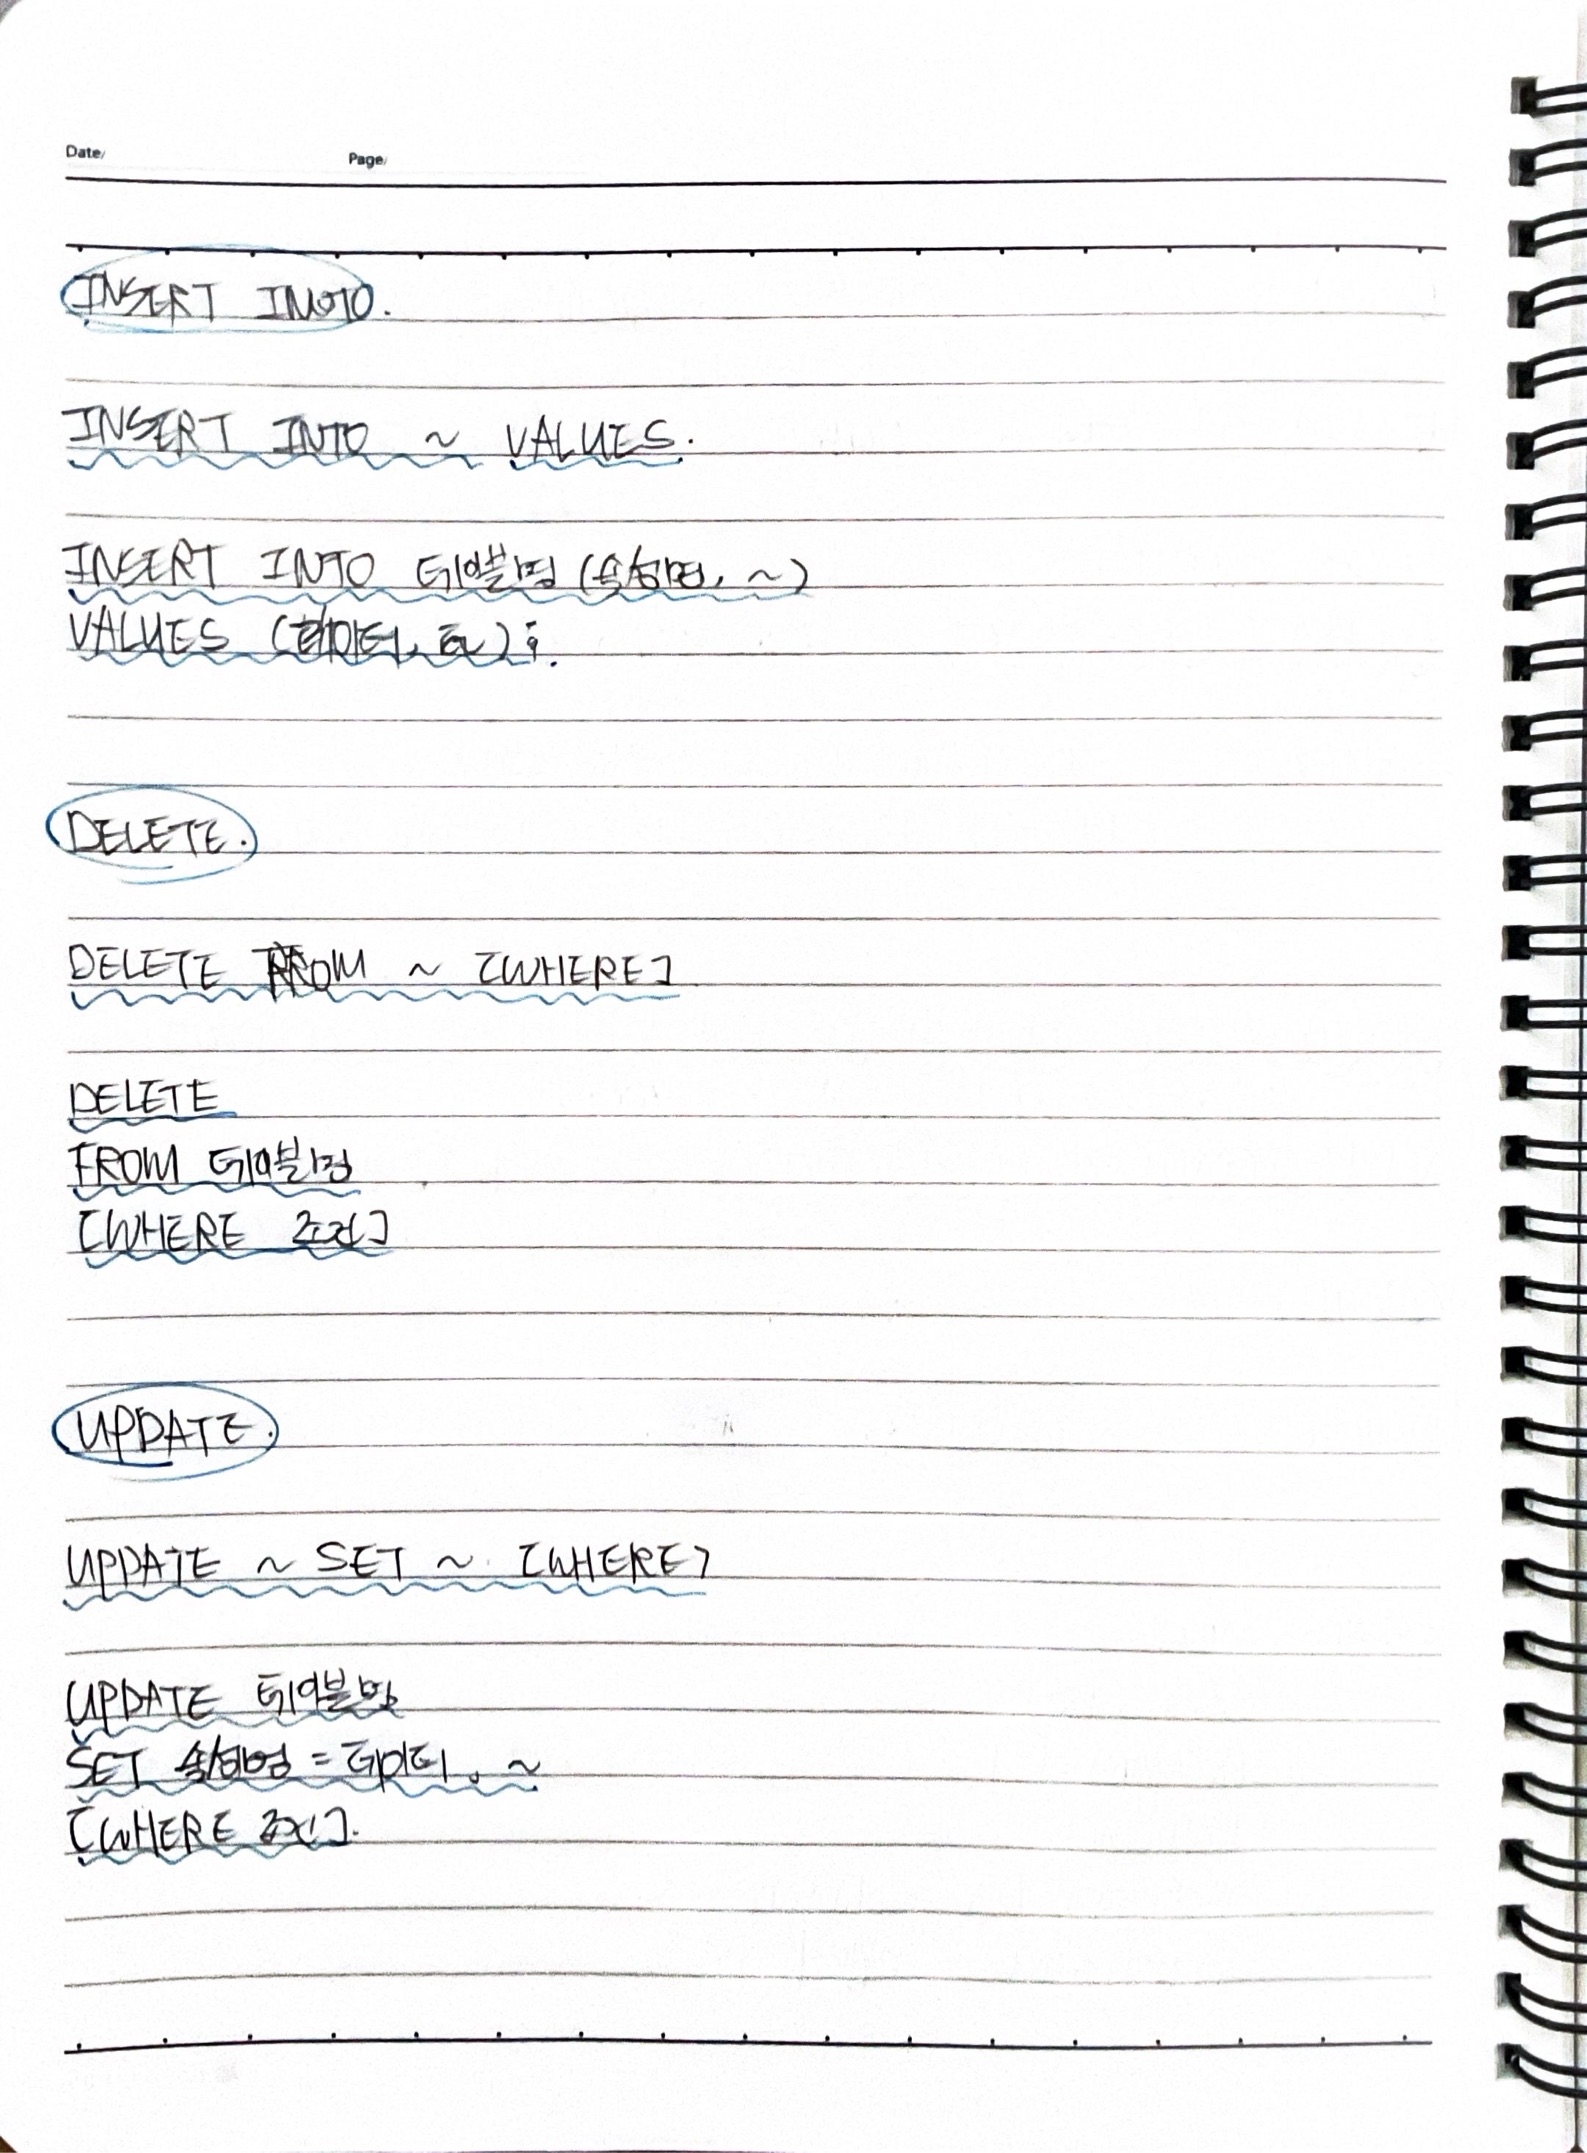 Date/ Page/
INSERT INTO.
INSERT INTO ~ VALUES.
INSERT INTO 테이블명 (속성명, ~)
VALUES (데이터, ~);
DELETE.
DELETE FROM ~ [WHERE]
DELETE
FROM 테이블명
[WHERE 조건]
UPDATE.
UPDATE ~ SET ~ [WHERE]
UPDATE 테이블명
SET 속성명 = 데이터, ~
[WHERE 조건].